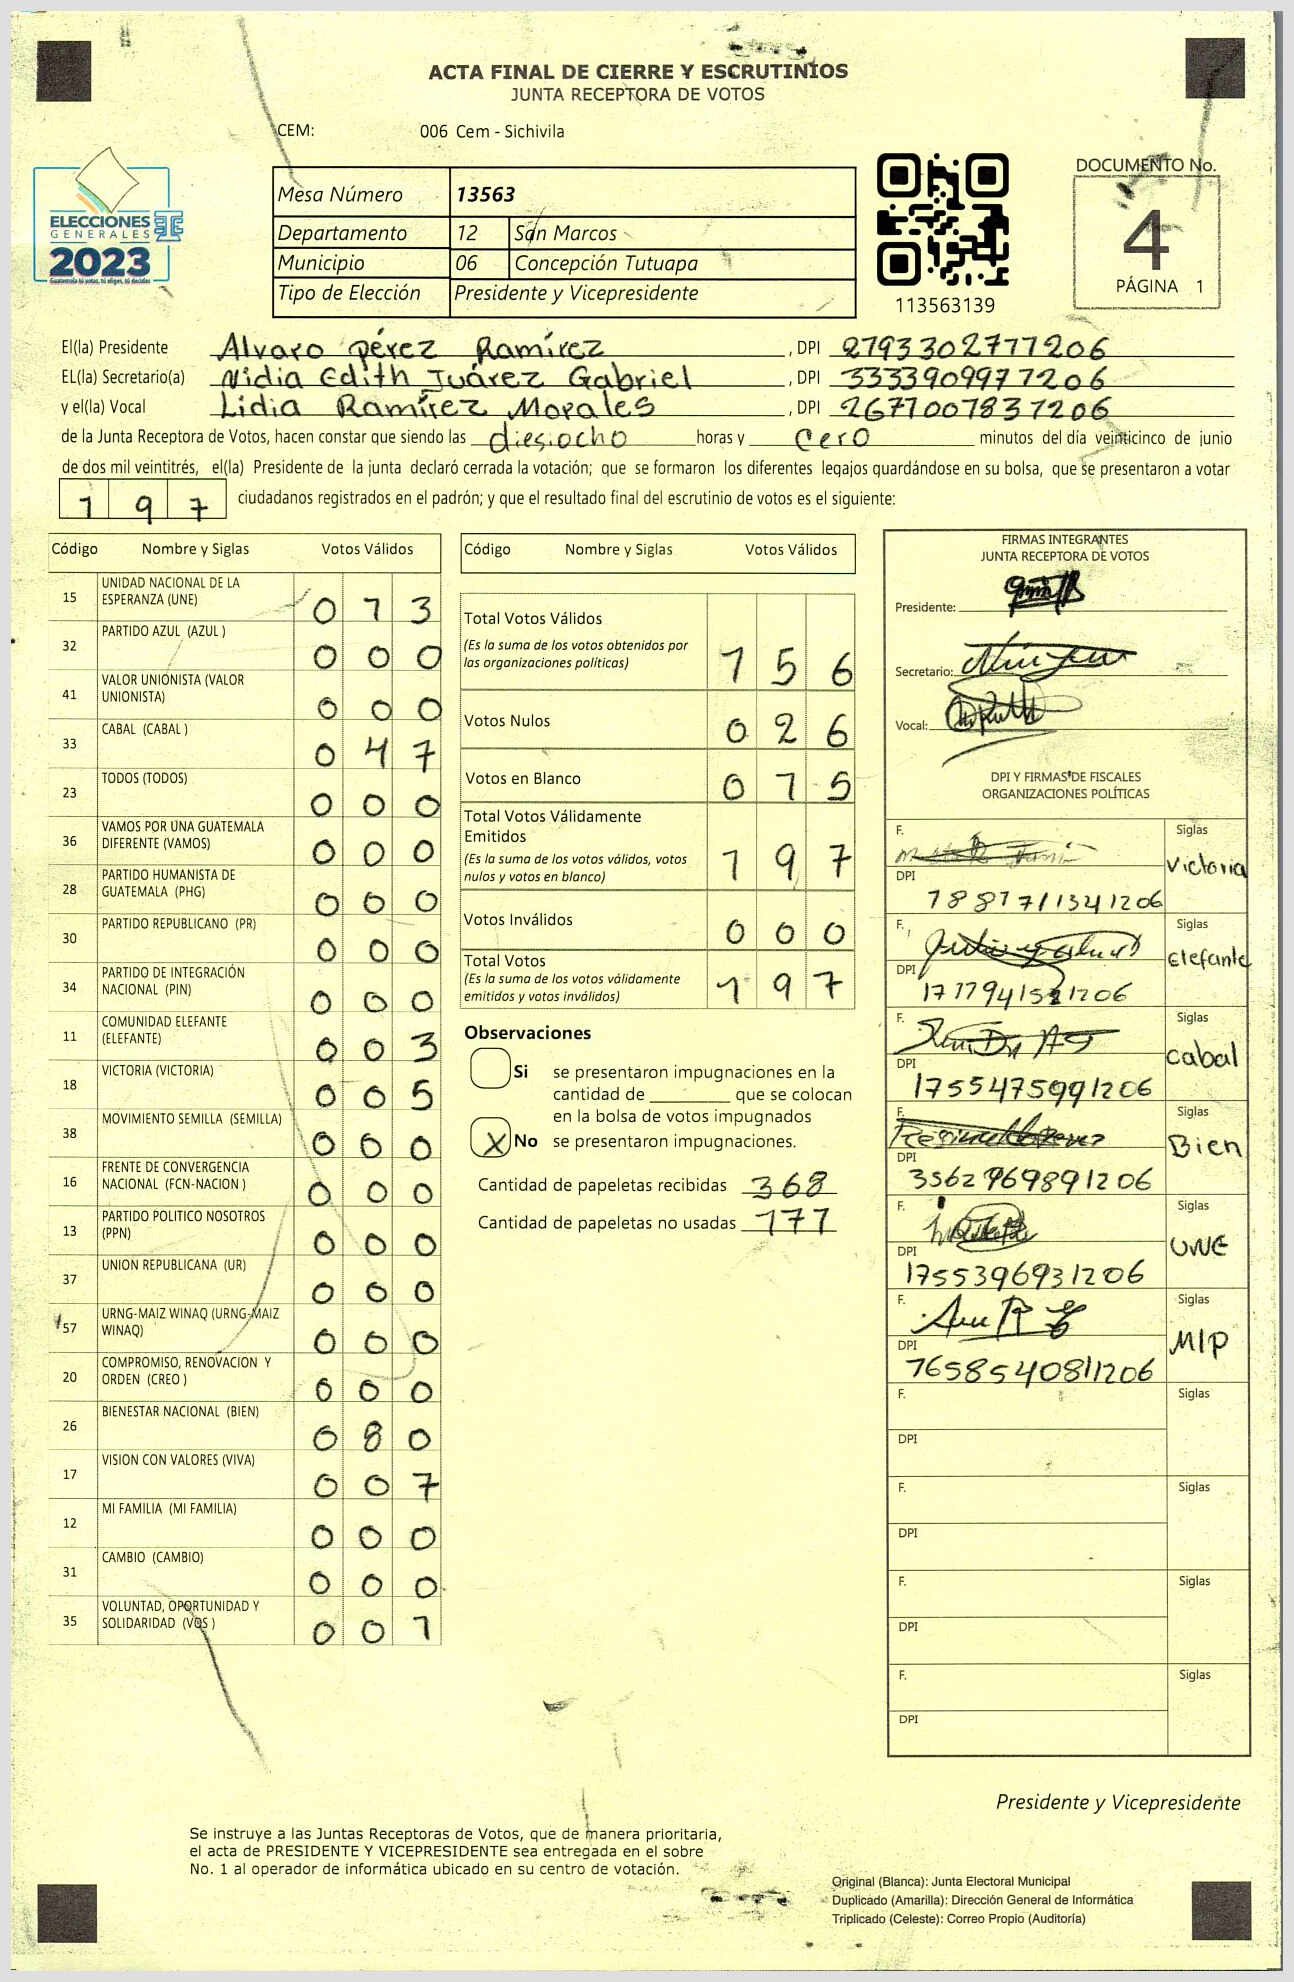 ACTA FINAL DE CIERRE Y ESCRUTINIOS
JUNTA RECEPTORA DE VOTOS
CEM: 006 Cem - Sichivila
ELECCIONES
GENERALES
2023
Guatemala tú votas, tú eliges, tú decides
Mesa Número 13563
Departamento 12 San Marcos
Municipio 06 Concepción Tutuapa
Tipo de Elección Presidente y Vicepresidente
113563139
DOCUMENTO No.
4
PÁGINA 1
El(la) Presidente Alvaro pérez Ramírez , DPI 2793302777206
EL(la) Secretario(a) Nidia Edith Juárez Gabriel , DPI 3333909977206
y el(la) Vocal Lidia Ramírez Morales , DPI 2677007837206
de la Junta Receptora de Votos, hacen constar que siendo las diesiocho horas y cero minutos del día veinticinco de junio
de dos mil veintitrés, el(la) Presidente de la junta declaró cerrada la votación; que se formaron los diferentes legajos guardándose en su bolsa, que se presentaron a votar
197 ciudadanos registrados en el padrón; y que el resultado final del escrutinio de votos es el siguiente:
Código Nombre y Siglas Votos Válidos
15 UNIDAD NACIONAL DE LA ESPERANZA (UNE) 013
32 PARTIDO AZUL (AZUL ) 000
41 VALOR UNIONISTA (VALOR UNIONISTA) 000
33 CABAL (CABAL ) 047
23 TODOS (TODOS) 000
36 VAMOS POR UNA GUATEMALA DIFERENTE (VAMOS) 000
28 PARTIDO HUMANISTA DE GUATEMALA (PHG) 000
30 PARTIDO REPUBLICANO (PR) 000
34 PARTIDO DE INTEGRACIÓN NACIONAL (PIN) 000
11 COMUNIDAD ELEFANTE (ELEFANTE) 003
18 VICTORIA (VICTORIA) 005
38 MOVIMIENTO SEMILLA (SEMILLA) 000
16 FRENTE DE CONVERGENCIA NACIONAL (FCN-NACION ) 000
13 PARTIDO POLITICO NOSOTROS (PPN) 000
37 UNION REPUBLICANA (UR) 000
57 URNG-MAIZ WINAQ (URNG-MAIZ WINAQ) 000
20 COMPROMISO, RENOVACION Y ORDEN (CREO ) 000
26 BIENESTAR NACIONAL (BIEN) 080
17 VISION CON VALORES (VIVA) 007
12 MI FAMILIA (MI FAMILIA) 000
31 CAMBIO (CAMBIO) 000
35 VOLUNTAD, OPORTUNIDAD Y SOLIDARIDAD (VOS ) 001
Código Nombre y Siglas Votos Válidos
Total Votos Válidos 156
(Es la suma de los votos obtenidos por
las organizaciones políticas)
Votos Nulos 026
Votos en Blanco 015
Total Votos Válidamente
Emitidos 197
(Es la suma de los votos válidos, votos
nulos y votos en blanco)
Votos Inválidos 000
Total Votos 197
(Es la suma de los votos válidamente
emitidos y votos inválidos)
Observaciones
Si se presentaron impugnaciones en la
cantidad de ________ que se colocan
en la bolsa de votos impugnados
X No se presentaron impugnaciones.
Cantidad de papeletas recibidas 368
Cantidad de papeletas no usadas 171
FIRMAS INTEGRANTES
JUNTA RECEPTORA DE VOTOS
Presidente:
Secretario:
Vocal:
DPI Y FIRMAS DE FISCALES
ORGANIZACIONES POLÍTICAS
F. Siglas
Victoria
DPI
F. Siglas
Elefante
DPI
F. Siglas
Cabal
DPI 1755475991206
F. Siglas
Bien
DPI 3562969891206
F. Siglas
UNE
DPI 1755396931206
F. Siglas
MLP
DPI 7658540811206
F. Siglas
DPI
F. Siglas
DPI
F. Siglas
DPI
F. Siglas
DPI
Presidente y Vicepresidente
Se instruye a las Juntas Receptoras de Votos, que de manera prioritaria,
el acta de PRESIDENTE Y VICEPRESIDENTE sea entregada en el sobre
No. 1 al operador de informática ubicado en su centro de votación.
Original (Blanca): Junta Electoral Municipal
Duplicado (Amarilla): Dirección General de Informática
Triplicado (Celeste): Correo Propio (Auditoría)